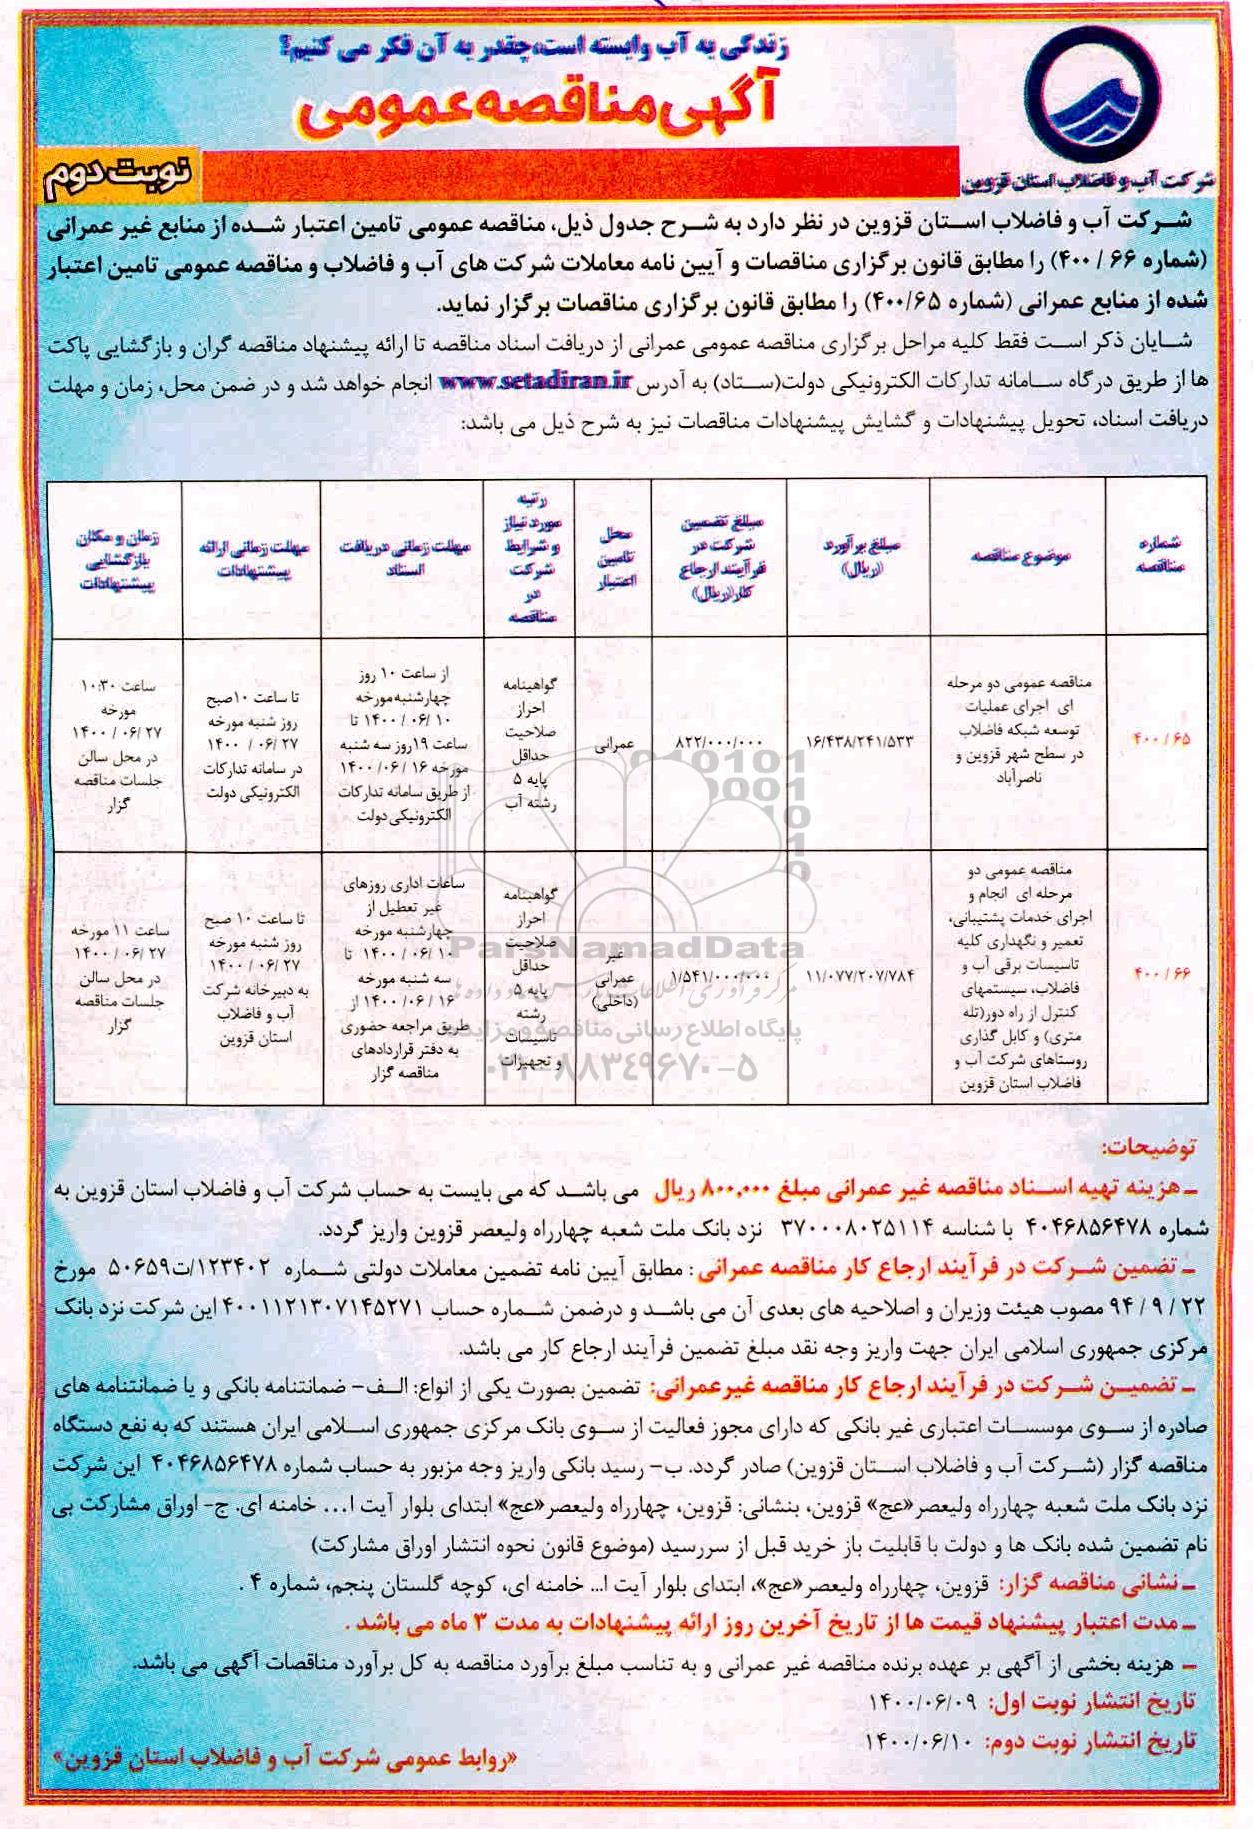 زندگی به آب وابسته است،چقدر به آن فکر می کنیم؟
آگهی مناقصه عمومی
نوبت دوم
شرکت آب و فاضلاب استان قزوین
شرکت آب و فاضلاب استان قزوین در نظر دارد به شرح جدول ذیل، مناقصه عمومی تامین اعتبار شده از منابع غیر عمرانی
(شماره ۶۶ / ۴۰۰) را مطابق قانون برگزاری مناقصات و آیین نامه معاملات شرکت های آب و فاضلاب و مناقصه عمومی تامین اعتبار
شده از منابع عمرانی (شماره ۴۰۰/۶۵) را مطابق قانون برگزاری مناقصات برگزار نماید.
شایان ذکر است فقط کلیه مراحل برگزاری مناقصه عمومی عمرانی از دریافت اسناد مناقصه تا ارائه پیشنهاد مناقصه گران و بازگشایی پاکت
ها از طریق درگاه سامانه تدارکات الکترونیکی دولت(ستاد) به آدرس www.setadiran.ir انجام خواهد شد و در ضمن محل، زمان و مهلت
دریافت اسناد، تحویل پیشنهادات و گشایش پیشنهادات مناقصات نیز به شرح ذیل می باشد:
شماره
مناقصه
موضوع مناقصه
مبلغ برآورد
(ریال)
مبلغ تضمین
شرکت در
فرآیند ارجاع
کار(ریال)
محل
تامین
اعتبار
رتبه
مورد نیاز
و شرایط
شرکت
در
مناقصه
مهلت زمانی دریافت
اسناد
مهلت زمانی ارائه
پیشنهادات
زمان و مکان
بازگشایی
پیشنهادات
۴۰۰ / ۶۵
مناقصه عمومی دو مرحله
ای اجرای عملیات
توسعه شبکه فاضلاب
در سطح شهر قزوین و
ناصرآباد
۱۶/۴۳۸/۲۴۱/۵۳۳
۸۲۲/۰۰۰/۰۰۰
عمرانی
گواهینامه
احراز
صلاحیت
حداقل
پایه ۵
رشته آب
از ساعت ۱۰ روز
چهارشنبه مورخه
۱۴۰۰ / ۰۶ / ۱۰ تا
ساعت ۱۹روز سه شنبه
مورخه ۱۶ / ۰۶ / ۱۴۰۰
از طریق سامانه تدارکات
الکترونیکی دولت
تا ساعت ۱۰صبح
روز شنبه مورخه
۱۴۰۰ / ۰۶ / ۲۷
در سامانه تدارکات
الکترونیکی دولت
ساعت ۱۰:۳۰
مورخه
۱۴۰۰ / ۰۶ / ۲۷
در محل سالن
جلسات مناقصه
گزار
۴۰۰ / ۶۶
مناقصه عمومی دو
مرحله ای انجام و
اجرای خدمات پشتیبانی،
تعمیر و نگهداری کلیه
تاسیسات برقی آب و
فاضلاب، سیستمهای
کنترل از راه دور(تله
متری) و کابل گذاری
روستاهای شرکت آب و
فاضلاب استان قزوین
۱۱/۰۷۷/۲۰۷/۷۸۴
۱/۵۴۱/۰۰۰/۰۰۰
غیر
عمرانی
(داخلی)
گواهینامه
احراز
صلاحیت
حداقل
پایه ۵
رشته
تاسیسات
و تجهیزات
ساعات اداری روزهای
غیر تعطیل از
چهارشنبه مورخه
۱۴۰۰ / ۰۶ / ۱۰ تا
سه شنبه مورخه
۱۴۰۰ / ۰۶ / ۱۶ از
طریق مراجعه حضوری
به دفتر قراردادهای
مناقصه گزار
تا ساعت ۱۰ صبح
روز شنبه مورخه
۱۴۰۰ / ۰۶ / ۲۷
به دبیرخانه شرکت
آب و فاضلاب
استان قزوین
ساعت ۱۱ مورخه
۱۴۰۰ / ۰۶ / ۲۷
در محل سالن
جلسات مناقصه
گزار
ParsNamadData
پایگاه اطلاع رسانی مناقصه و مزایده
۰۲۱-۸۸۳۴۹۶۷۰-۵
توضیحات:
- هزینه تهیه اسناد مناقصه غیر عمرانی مبلغ ۸۰۰،۰۰۰ ریال می باشد که می بایست به حساب شرکت آب و فاضلاب استان قزوین به
شماره ۴۰۴۶۸۵۶۴۷۸ با شناسه ۳۷۰۰۰۸۰۲۵۱۱۴ نزد بانک ملت شعبه چهارراه ولیعصر قزوین واریز گردد.
- تضمین شرکت در فرآیند ارجاع کار مناقصه عمرانی : مطابق آیین نامه تضمین معاملات دولتی شماره ۱۲۳۴۰۲/ت۵۰۶۵۹ مورخ
۹۴ / ۹ / ۲۲ مصوب هیئت وزیران و اصلاحیه های بعدی آن می باشد و درضمن شماره حساب ۴۰۰۱۱۲۱۳۰۷۱۴۵۲۷۱ این شرکت نزد بانک
مرکزی جمهوری اسلامی ایران جهت واریز وجه نقد مبلغ تضمین فرآیند ارجاع کار می باشد.
- تضمین شرکت در فرآیند ارجاع کار مناقصه غیرعمرانی: تضمین بصورت یکی از انواع: الف- ضمانتنامه بانکی و یا ضمانتنامه های
صادره از سوی موسسات اعتباری غیر بانکی که دارای مجوز فعالیت از سوی بانک مرکزی جمهوری اسلامی ایران هستند که به نفع دستگاه
مناقصه گزار (شرکت آب و فاضلاب استان قزوین) صادر گردد. ب- رسید بانکی واریز وجه مزبور به حساب شماره ۴۰۴۶۸۵۶۴۷۸ این شرکت
نزد بانک ملت شعبه چهارراه ولیعصر«عج» قزوین، بنشانی: قزوین، چهارراه ولیعصر«عج» ابتدای بلوار آیت ا... خامنه ای. ج- اوراق مشارکت بی
نام تضمین شده بانک ها و دولت با قابلیت باز خرید قبل از سررسید (موضوع قانون نحوه انتشار اوراق مشارکت)
- نشانی مناقصه گزار: قزوین، چهارراه ولیعصر«عج»، ابتدای بلوار آیت ا... خامنه ای، کوچه گلستان پنجم، شماره ۴ .
- مدت اعتبار پیشنهاد قیمت ها از تاریخ آخرین روز ارائه پیشنهادات به مدت ۳ ماه می باشد .
- هزینه بخشی از آگهی بر عهده برنده مناقصه غیر عمرانی و به تناسب مبلغ برآورد مناقصه به کل برآورد مناقصات آگهی می باشد.
تاریخ انتشار نوبت اول: ۱۴۰۰/۰۶/۰۹
تاریخ انتشار نوبت دوم: ۱۴۰۰/۰۶/۱۰
«روابط عمومی شرکت آب و فاضلاب استان قزوین»